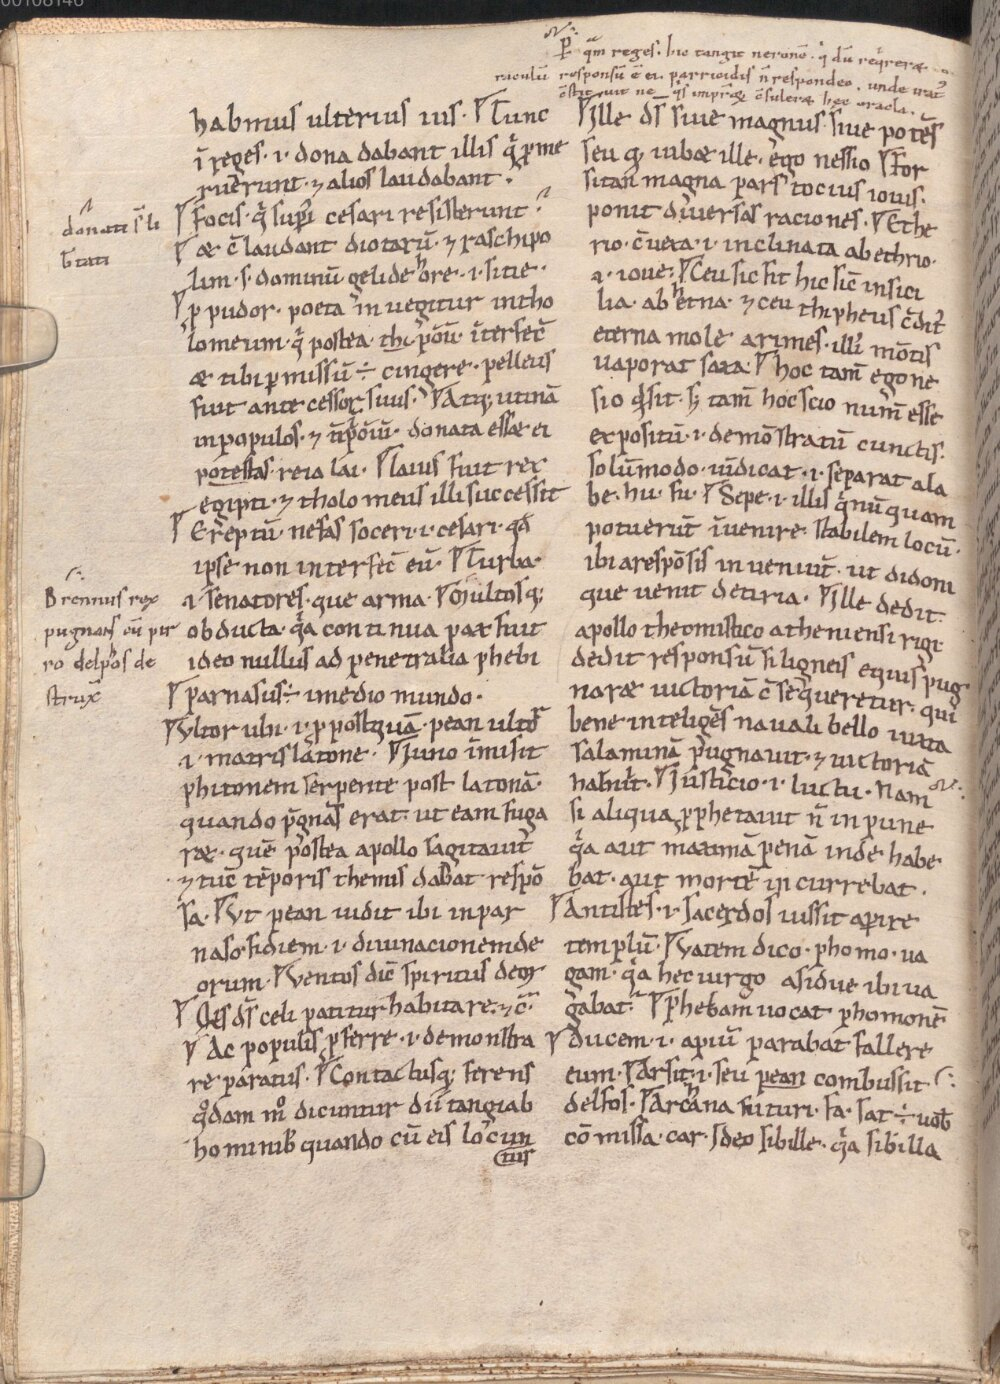 00108140
ꝑ qm̄ reges. hic tangit neronē. q̇ dū reqrerꝫ
raculū responsū ē ei. parricidis n̄ respondeo. unde irat᷒
habmus ulterius ius. Tunc
i reges. i. dona dabant illis q̄ p̄me
ruērunt. ⁊ alios laudabant.
Focis. q̄ supi cesari resisterunt
donati sli
b̄tati
æ c̄ laudant diotarū. ⁊ raschipo
lim. s. dominū gelide hore. i. sitie.
ꝓ pudor. poeta inuegitur intho
lomeum. q̄ postea thi. pōiū. īterfec̄
æ tibi ꝑmissū ÷ cingere. pelleus
fuit antecessor suus. Atqꝫ utinā
in populos. ⁊ tp̄ōiū. donata essæ ei
potestas reia lai. laius fuit rex
egipti. ⁊ tholomeus illi successit
Ereptū. nefas soceri. i. cesari. qa
ipse non interfec̄ eū. Turba.
i. senatores. que arma. Multosqꝫ
Brennus rex
pugnans cū pir
ro delphos de
strux̄
obducta. q̄a continua pax fuit
ideo nullus ad penetralia phebi
parnasus ÷ imedio mundo.
Vltor ubi. i. ꝓ postquā. pean ultor
i. matris latone. Juno īmisit
phitonem serpente post latonā.
quando p̄gnās erat. ut eam fuga
ræ. quē postea apollo sagitauit
⁊ tūc tēporis themis dabat respō
sa. Vt pean uidit ibi in par
naso. fidiem. i. diuinacionem de
orum. Ventos dic̄ spiritus deor
Qis ds̄ celi patitur habitare. ⁊ c̄
Ac populis. ꝓferre. i. demonstra
re paratus. Contactusqꝫ ferens
q̊dam m̊ dicuntur dū tangi ab
hominibꝰ quando cū eis locun
tur
Ille ds̄ siue magnus siue potēs
seu qꝫ iubæ ille. ego nessio For
sitan magna pars tocius iouis.
ponit diuersas raciones. Ethe
rio. c̄uexa. i. inclinata ab ethrio
a. ioue. Ceu sic fit hic sic̄ in sici
lia. ab hetna. ⁊ ceu thipheus c̄dit᷒
eterna mole arimes. illi᷒ mōtis
uaporat saxa. hoc tam̄ ego ne
sio qd̄ sit. sꝫ tam̄ hoc scio num̄ esse
expositū. i. demōstratū cunctis.
solūmodo. iudicat. i. separat a la
be. hu. fu. Sepe. i. illis q̄ nūquam
potuerūt īuenire stabilem locū.
ibi arespōsis inueniūt. ut didoni
que uenit de tiria. Ille dedit
apollo theomistico atheniensi rigi
dedit responsū si ligneis equis pug
naræ uictoriā c̄seq̄ueretur. qui
bene inteligēs nauali bello iuxta
salaminā pugnauit. ⁊ uictoriā
habuit. Justicio. i. luctu. Nam
si aliqua ꝓphetauit n̄ inpune
q̄a aut maximā penā inde habe
bat. aut mortē incurrebat.
Antistes. i. sacerdos iussit aꝑire
templū. Vatem dico. phomo. ua
gam. q̄a hec uirgo asidue ibi ua
gabat᷒. Phebam uocat phomonē
ducem. i. apiū parabat fallere
eum. Arsit. i. seu pean combussit.
delfos. Archana futuri. fa. sat ÷ uob̄
cōmissa. car. Ideo sibille. q̄a sibilla